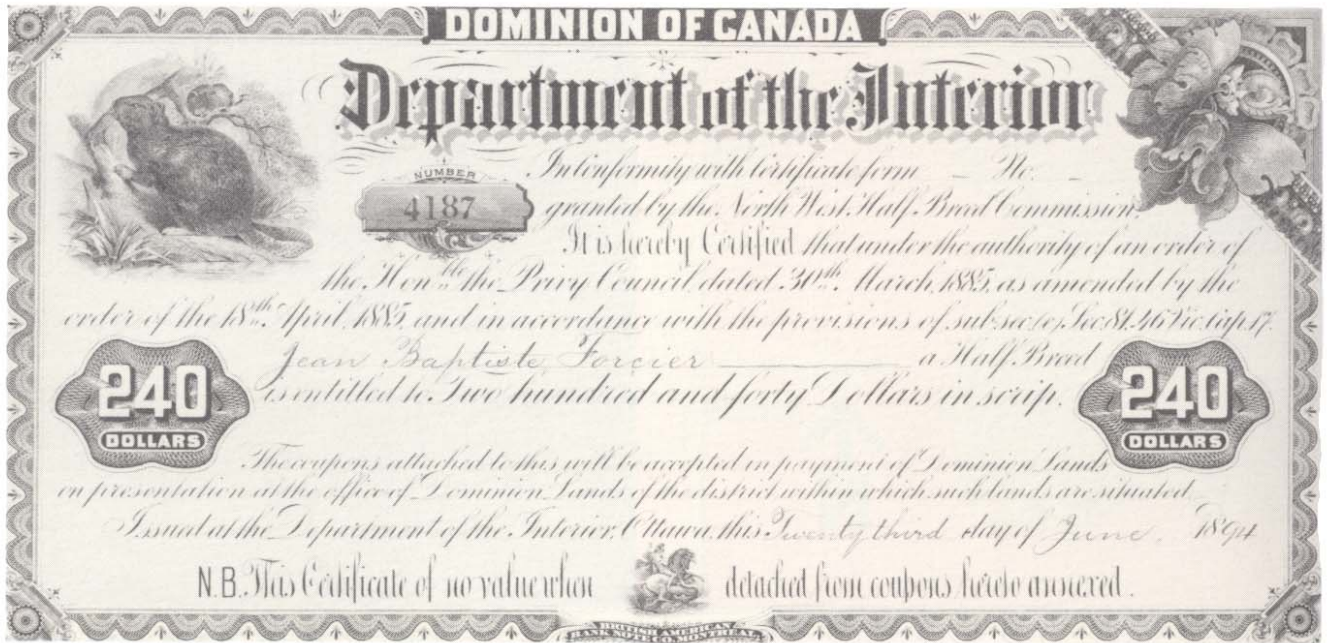 DOMINION OF CANADA
Department of the Interior
In Conformity with Certificate form – No. –
NUMBER
4187
granted by the North West Half Breed Commission,
It is hereby Certified that under the authority of an order of
the Hon.ble the Privy Council dated 30th. March, 1885, as amended by the
order of the 18th. April, 1885, and in accordance with the provisions of sub-sec (e) Sec 81. 46 Vic. Cap. 17.
Jean Baptiste Forcier a Half Breed
is entitled to Two hundred and forty Dollars in scrip.
240
DOLLARS
240
DOLLARS
The coupons attached to this will be accepted in payment of Dominion Lands
on presentation at the office of Dominion Lands of the district within which such lands are situated.
Issued at the Department of the Interior, Ottawa, this Twenty third day of June. 1894
N.B. This Certificate of no value when detached from coupons hereto annexed.
BRITISH AMERICAN
BANK NOTE CO. MONTREAL